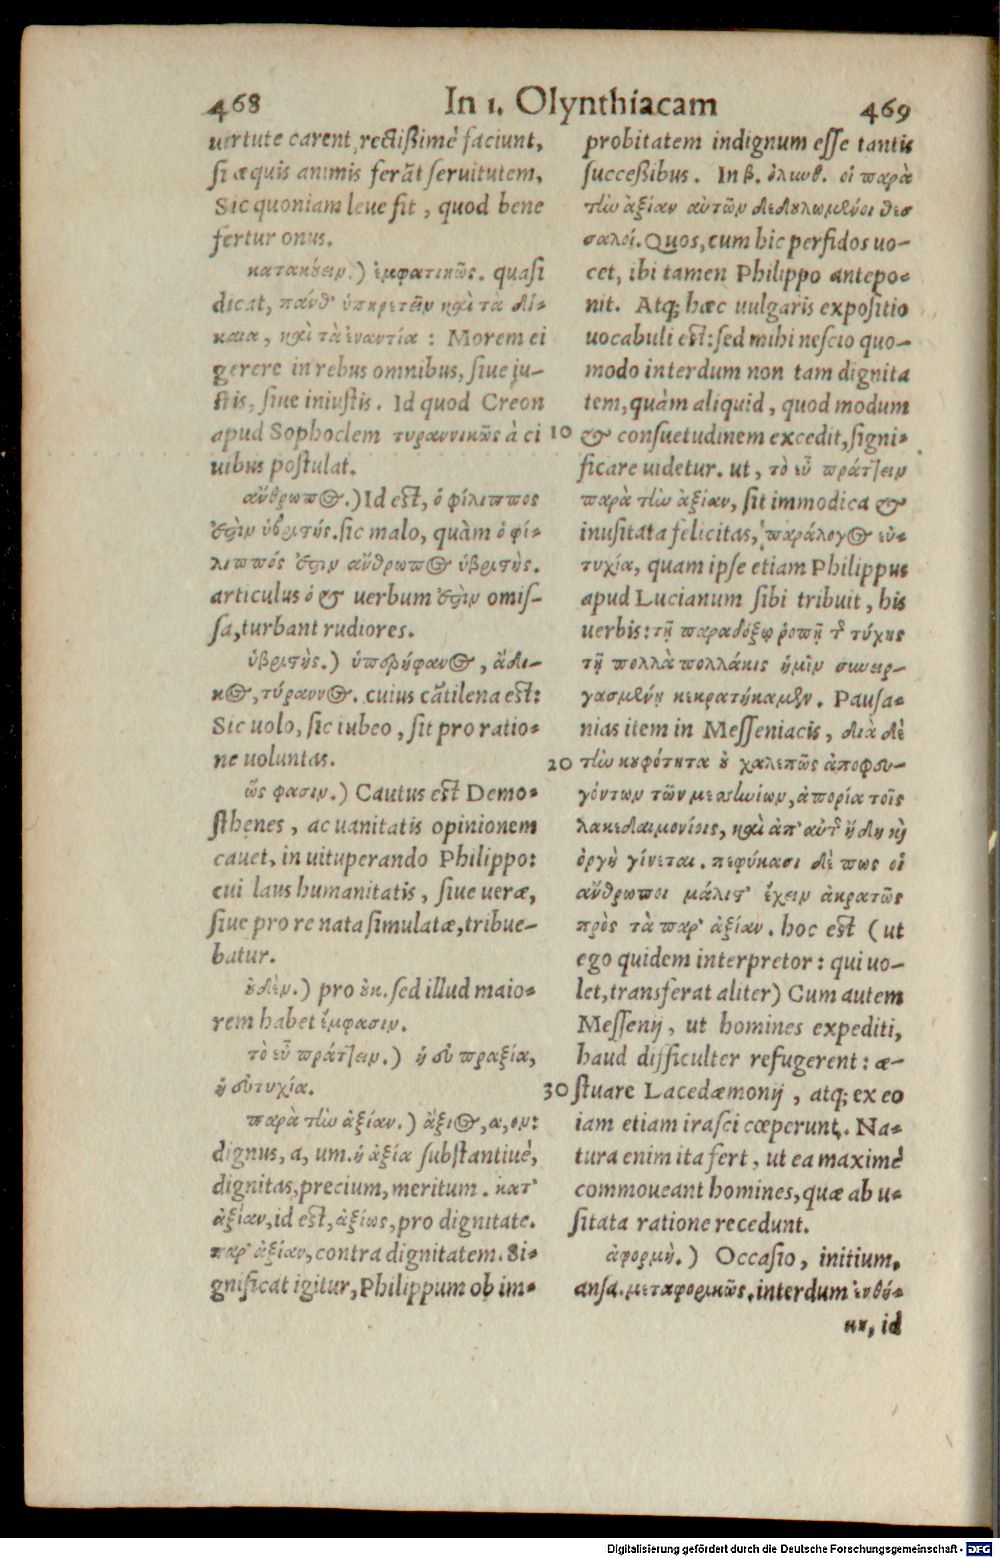 468 In 1. Olynthiacam 469
uirtute carent, rectißimè faciunt,
si æquis animis ferāt seruitutem,
Sic quoniam leue fit, quod bene
fertur onus.
κατακούειν.) ἐμφατικῶς. quasi
dicat, πάνθ' ὑπηρετεῖν καὶ τὰ δί-
καια, καὶ τὰ ἐναντία : Morem ei
gerere in rebus omnibus, siue iu-
stis, siue iniustis. Id quod Creon
apud Sophoclem τυραννικῶς à ci
uibus postulat.
ἄνθρωπος.) Id est, ὁ φίλιππος
ἐστὶν ὑβριστής. sic malo, quàm ὁ φί-
λιππός ἐστιν ἄνθρωπος ὑβριστής.
articulus ὁ & uerbum ἐστὶν omis-
sa, turbant rudiores.
ὑβριστής.) ὑπερήφανος, ἄδι-
κος, τύραννος. cuius cātilena est:
Sic uolo, sic iubeo, sit pro ratio-
ne uoluntas.
ὥς φασιν.) Cautus est Demo-
sthenes, ac uanitatis opinionem
cauet, in uituperando Philippo:
cui laus humanitatis, siue ueræ,
siue pro re nata simulatæ, tribue-
batur.
οὐδὲν.) pro οὐκ. sed illud maio-
rem habet ἔμφασιν.
τὸ εὖ πράττειν.) ἡ εὐπραξία,
ἡ εὐτυχία.
παρὰ τὴν ἀξίαν.) ἄξιος, α, ον:
dignus, a, um. ἡ ἀξία substantiuè,
dignitas, precium, meritum. κατ'
ἀξίαν, id est, ἀξίως, pro dignitate.
παρ' ἀξίαν, contra dignitatem. Si-
gnificat igitur, Philippum ob im-
probitatem indignum esse tantis
succeßibus. In β. ὀλυνθ. οἱ παρὰ
τὴν ἀξίαν αὐτῶν δεδουλωμένοι θεσ
σαλοί. Quos, cum hic perfidos uo-
cet, ibi tamen Philippo antepo-
nit. Atq; hæc uulgaris expositio
uocabuli est: sed mihi nescio quo-
modo interdum non tam dignita
tem, quàm aliquid, quod modum
10 & consuetudinem excedit, signi-
ficare uidetur. ut, τὸ εὖ πράττειν
παρὰ τὴν ἀξίαν, sit immodica &
inusitata felicitas, παράλογος εὐ-
τυχία, quam ipse etiam Philippus
apud Lucianum sibi tribuit, his
uerbis: τῇ παραδόξῳ ῥοπῇ τῆς τύχης
τῇ πολλὰ πολλάκις ἡμῖν συνειρ-
γασμένῃ κεκρατήκαμεν. Pausa-
nias item in Messeniacis, διὰ δὲ
20 τὴν κουφότητα οὐ χαλεπῶς ἀποφευ-
γόντων τῶν μεσσηνίων, ἀπορία τοῖς
λακεδαιμονίοις, καὶ ἀπ' αὐτῆς ἤδη καὶ
ὀργὴ γίνεται. πεφύκασι δέ πως οἱ
ἄνθρωποι μάλιστ' ἔχειν ἀκρατῶς
πρὸς τὰ παρ' ἀξίαν. hoc est (ut
ego quidem interpretor: qui uo-
let, transferat aliter) Cum autem
Messenij, ut homines expediti,
haud difficulter refugerent: æ-
30 stuare Lacedæmonij, atq; ex eo
iam etiam irasci cœperunt. Na-
tura enim ita fert, ut ea maximè
commoueant homines, quæ ab u-
sitata ratione recedunt.
ἀφορμὴ.) Occasio, initium,
ansa. μεταφορικῶς. interdum ἐνθή-
κη, id
Digitalisierung gefördert durch die Deutsche Forschungsgemeinschaft - DFG